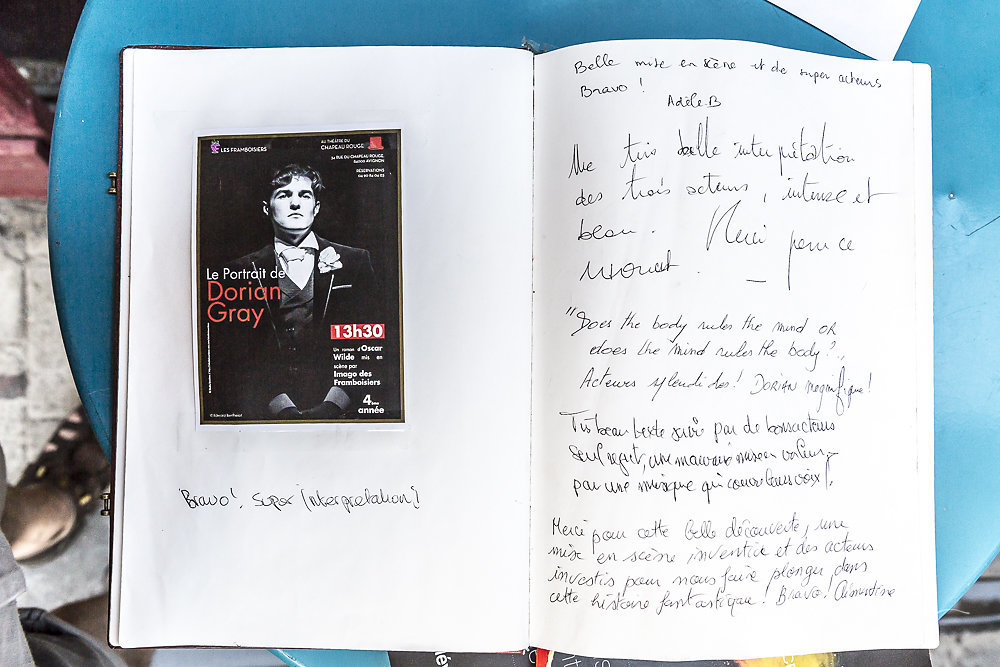 LES FRAMBOISIERS
AU THÉÂTRE DU
CHAPEAU ROUGE
34 RUE DU CHAPEAU ROUGE,
84000 AVIGNON
RÉSERVATIONS
Le Portrait de
Dorian
Gray
13h30
Un roman d'Oscar
Wilde mis en
scène par
Imago des
Framboisiers
4ème
année
Bravo! Super interprétation!
Belle mise en scène et de super acteurs
Bravo !
Adèle B
Une très belle interprétation
des trois acteurs, intense et
beau. Merci pour ce
moment.
"Does the body rules the mind or
does the mind rules the body?"
Acteurs splendides! DORIAN magnifique!
Très beau texte suivi par de bons acteurs
Seul regret, une mauvaise mise en valeur
par une musique qui couvre leurs voix!
Merci pour cette belle découverte, une
mise en scène inventive et des acteurs
investis pour nous faire plonger dans
cette histoire fantastique! Bravo!